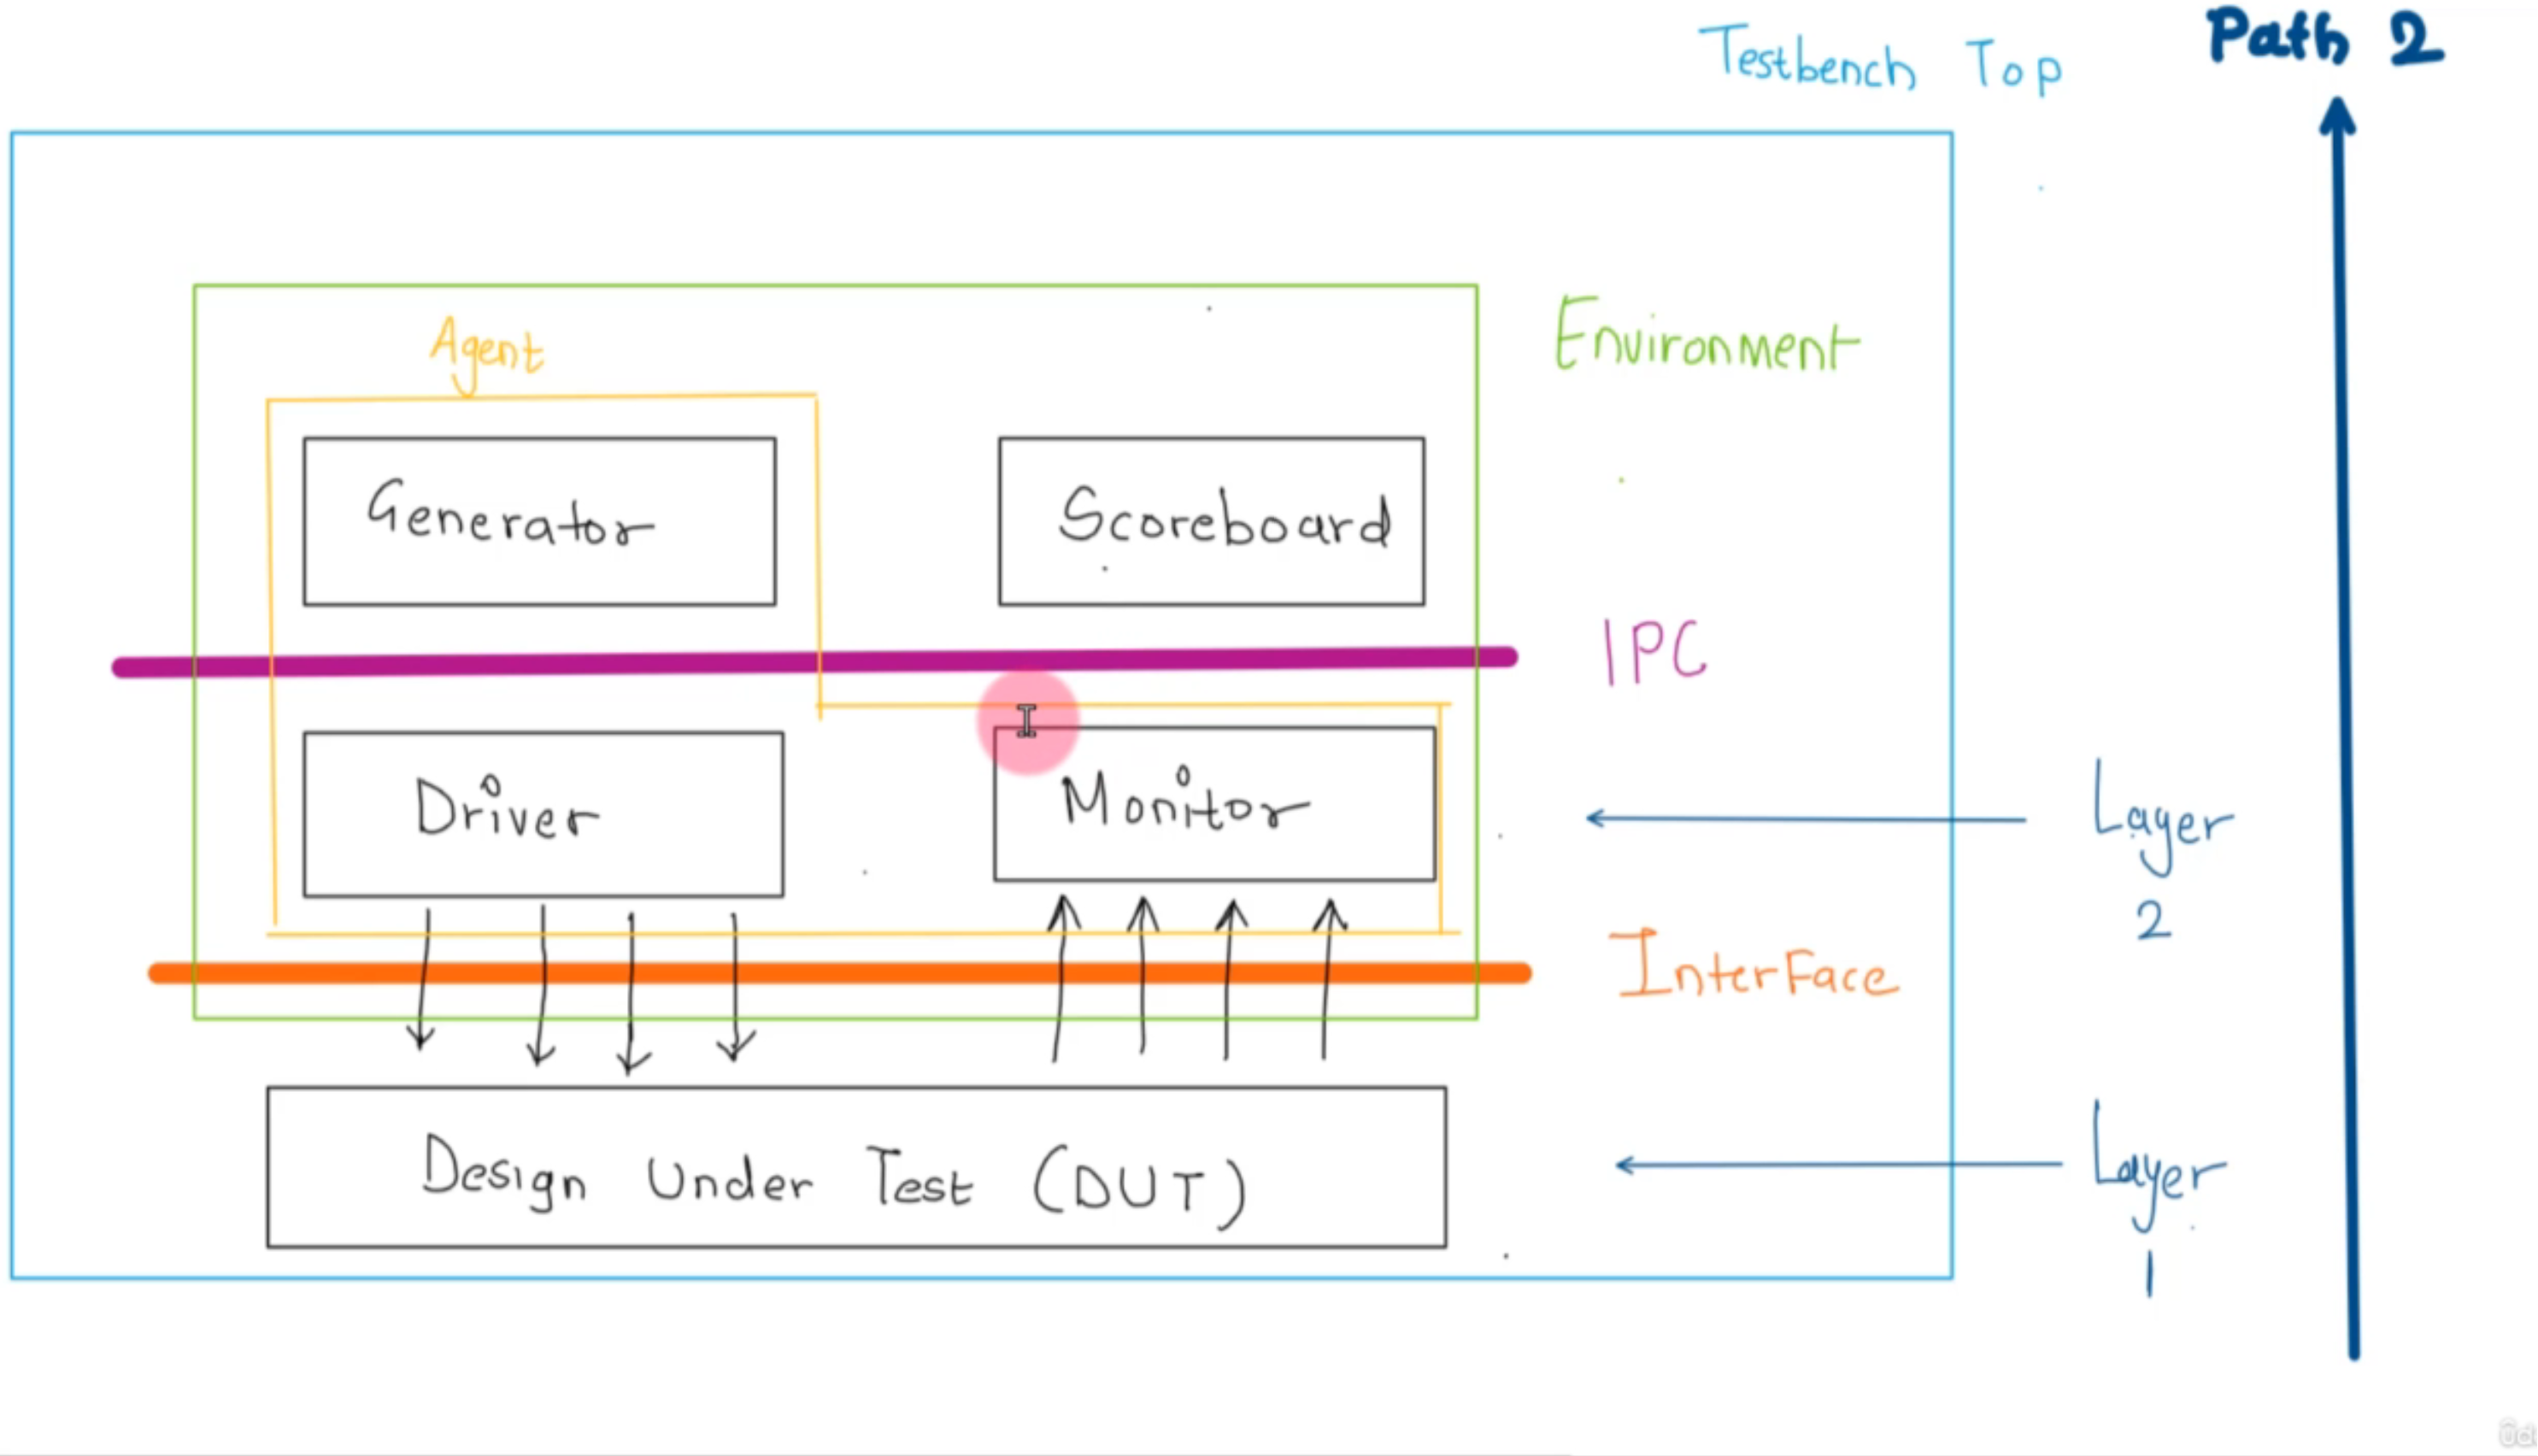 Path 2
Testbench Top
Environment
Agent
Generator
Scoreboard
IPC
Driver
Monitor
Layer
2
Interface
Design Under Test (DUT)
Layer
1
ûd